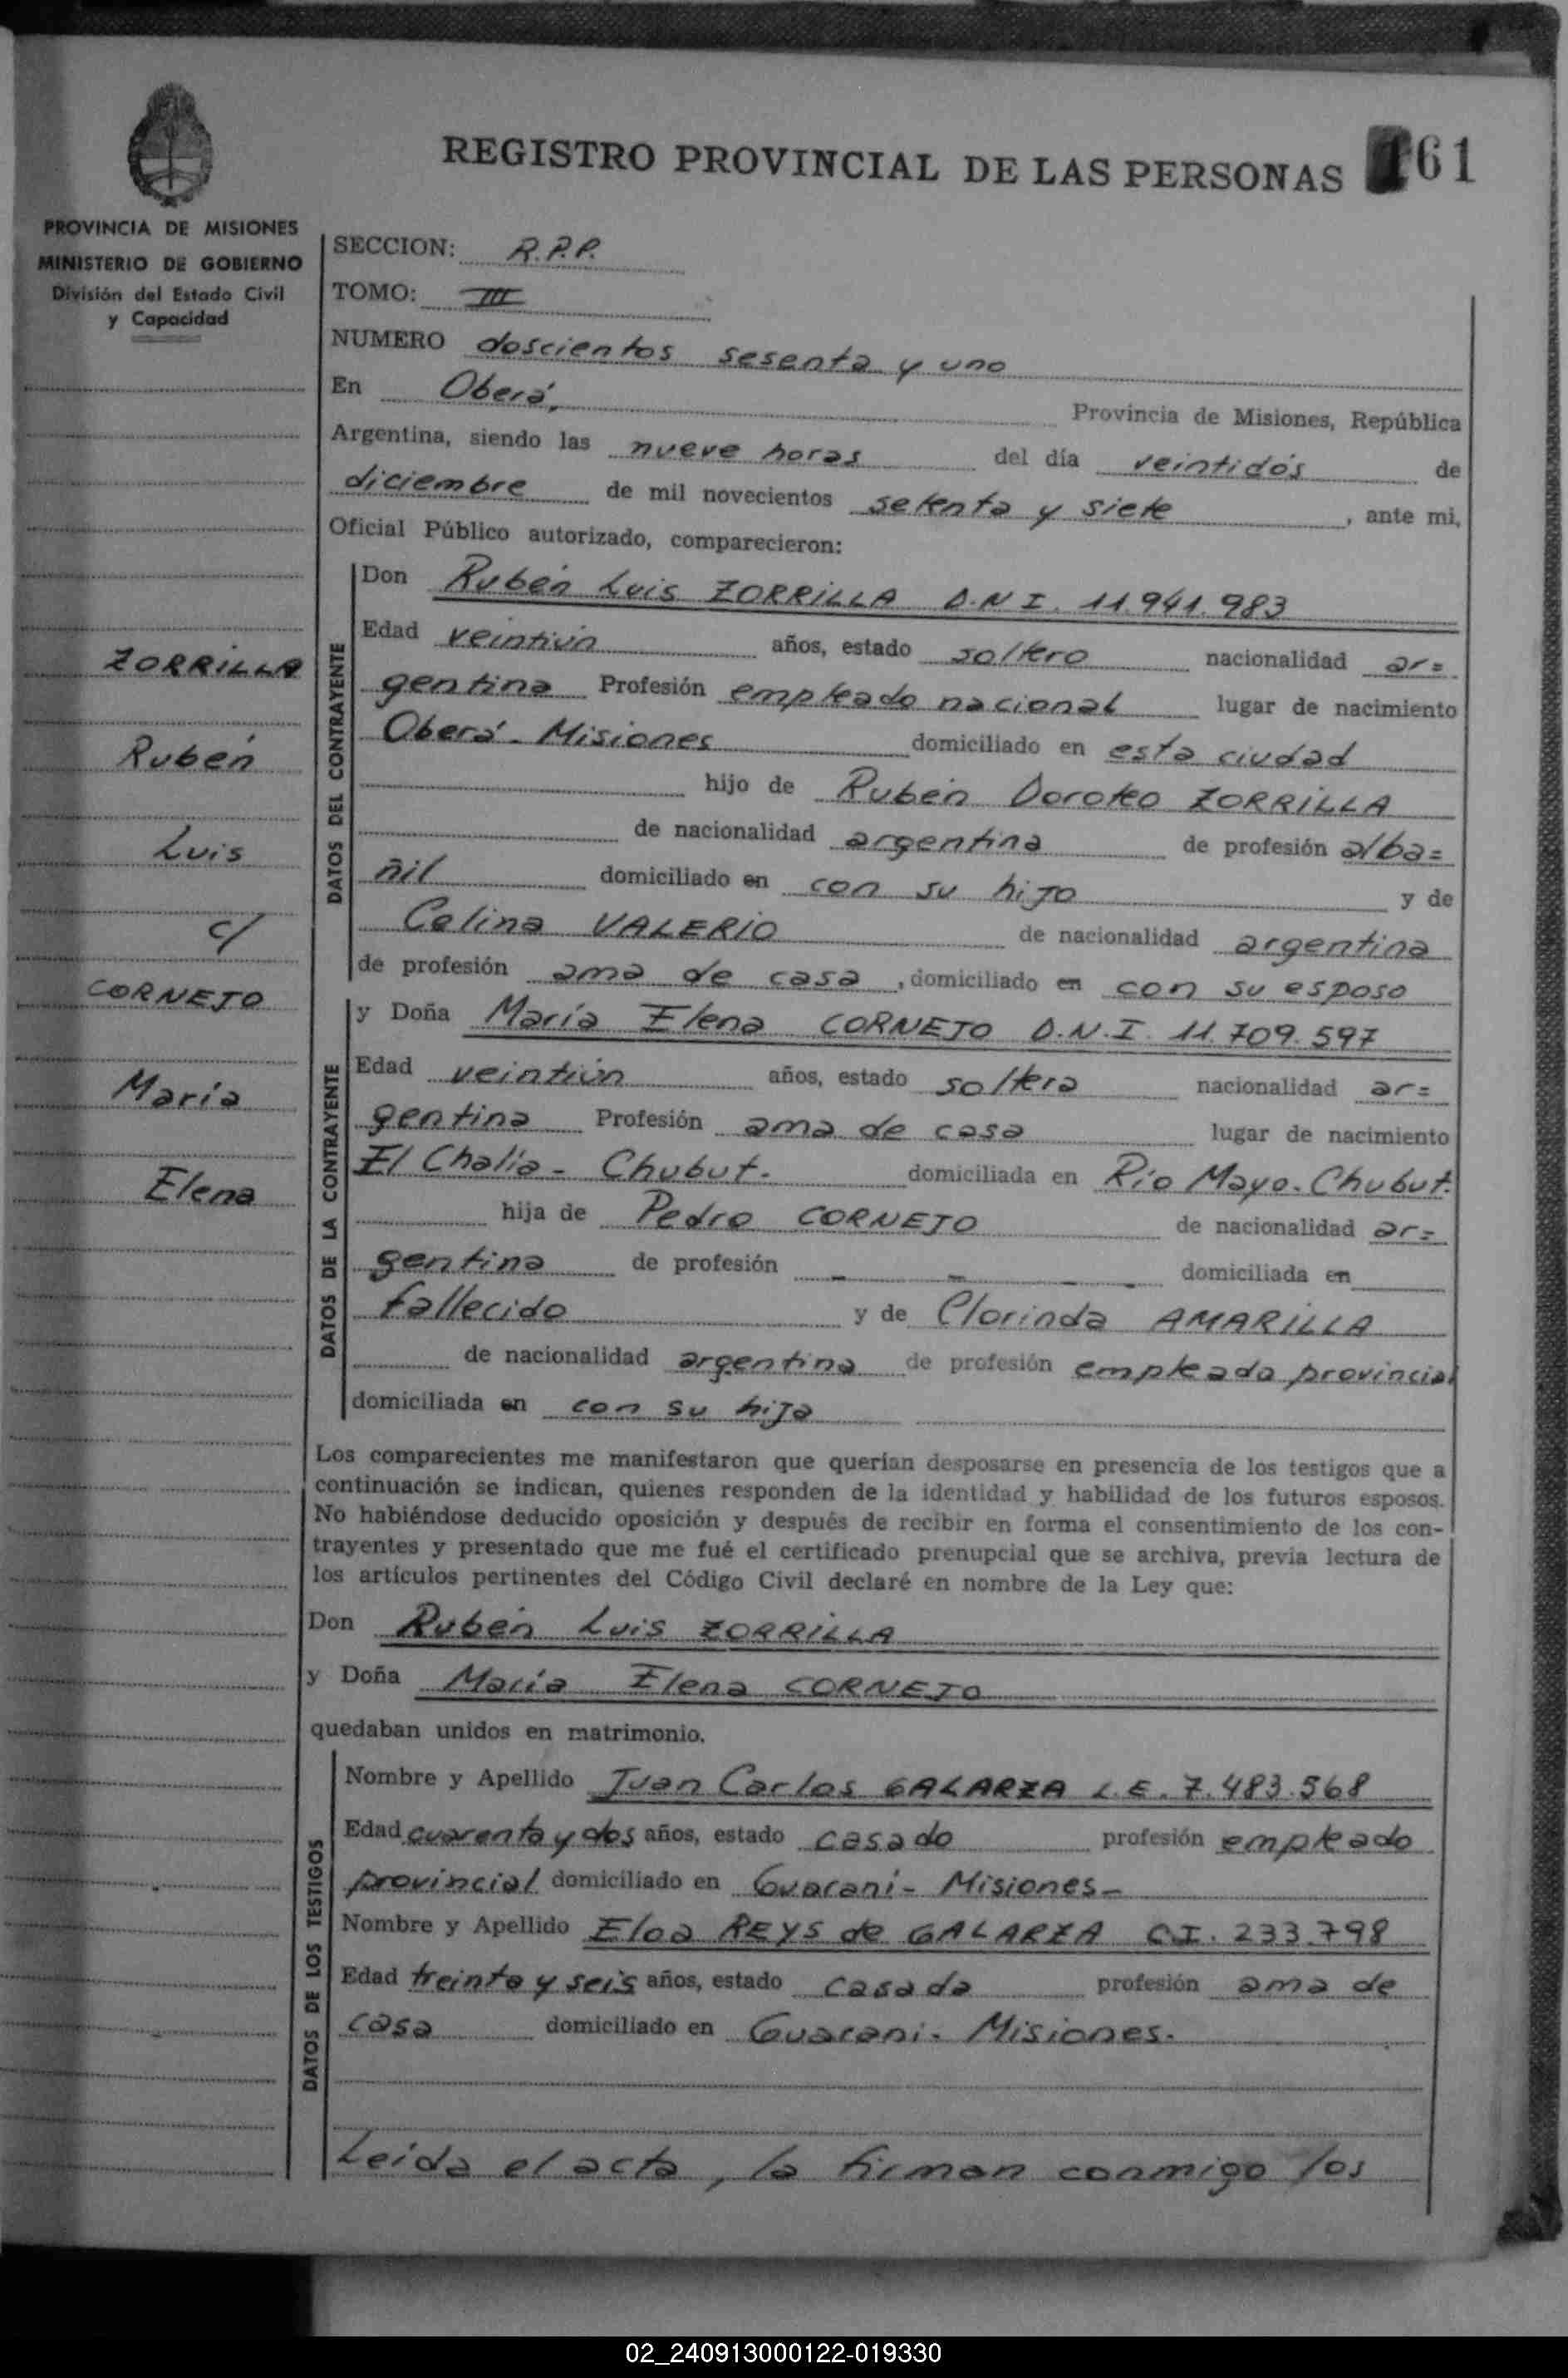 REGISTRO PROVINCIAL DE LAS PERSONAS 61
PROVINCIA DE MISIONES
MINISTERIO DE GOBIERNO
División del Estado Civil
y Capacidad
ZORRILLA
Rubén
Luis
c/
CORNEJO
María
Elena
SECCION: R.P.P.
TOMO: III
NUMERO doscientos sesenta y uno
En Oberá, Provincia de Misiones, República
Argentina, siendo las nueve horas del día veintidós de
diciembre de mil novecientos setenta y siete, ante mi,
Oficial Público autorizado, comparecieron:
DATOS DEL CONTRAYENTE
Don Rubén Luis ZORRILLA D.N.I. 11.941.983
Edad veintiún años, estado soltero nacionalidad ar=
gentina Profesión empleado nacional lugar de nacimiento
Oberá - Misiones domiciliado en esta ciudad
hijo de Rubén Doroteo ZORRILLA
de nacionalidad argentina de profesión alba=
ñil domiciliado en con su hijo y de
Celina VALERIO de nacionalidad argentina
de profesión ama de casa, domiciliado en con su esposo
DATOS DE LA CONTRAYENTE
y Doña María Elena CORNEJO D.N.I. 11.709.597
Edad veintiún años, estado soltera nacionalidad ar=
gentina Profesión ama de casa lugar de nacimiento
El Chalía - Chubut. domiciliada en Río Mayo. Chubut.
hija de Pedro CORNEJO de nacionalidad ar=
gentina de profesión - - - domiciliada en
fallecido y de Clorinda AMARILLA
de nacionalidad argentina de profesión empleada provincial
domiciliada en con su hija
Los comparecientes me manifestaron que querían desposarse en presencia de los testigos que a
continuación se indican, quienes responden de la identidad y habilidad de los futuros esposos.
No habiéndose deducido oposición y después de recibir en forma el consentimiento de los con-
trayentes y presentado que me fué el certificado prenupcial que se archiva, previa lectura de
los artículos pertinentes del Código Civil declaré en nombre de la Ley que:
Don Rubén Luis ZORRILLA
y Doña María Elena CORNEJO
quedaban unidos en matrimonio.
DATOS DE LOS TESTIGOS
Nombre y Apellido Juan Carlos GALARZA L.E. 7.483.568
Edad cuarenta y dos años, estado casado profesión empleado
provincial domiciliado en Guaraní - Misiones -
Nombre y Apellido Eloa REYS de GALARZA C.I. 233.798
Edad treinta y seis años, estado casada profesión ama de
casa domiciliado en Guaraní. Misiones.
Leída el acta, la firman conmigo los
02_240913000122-019330